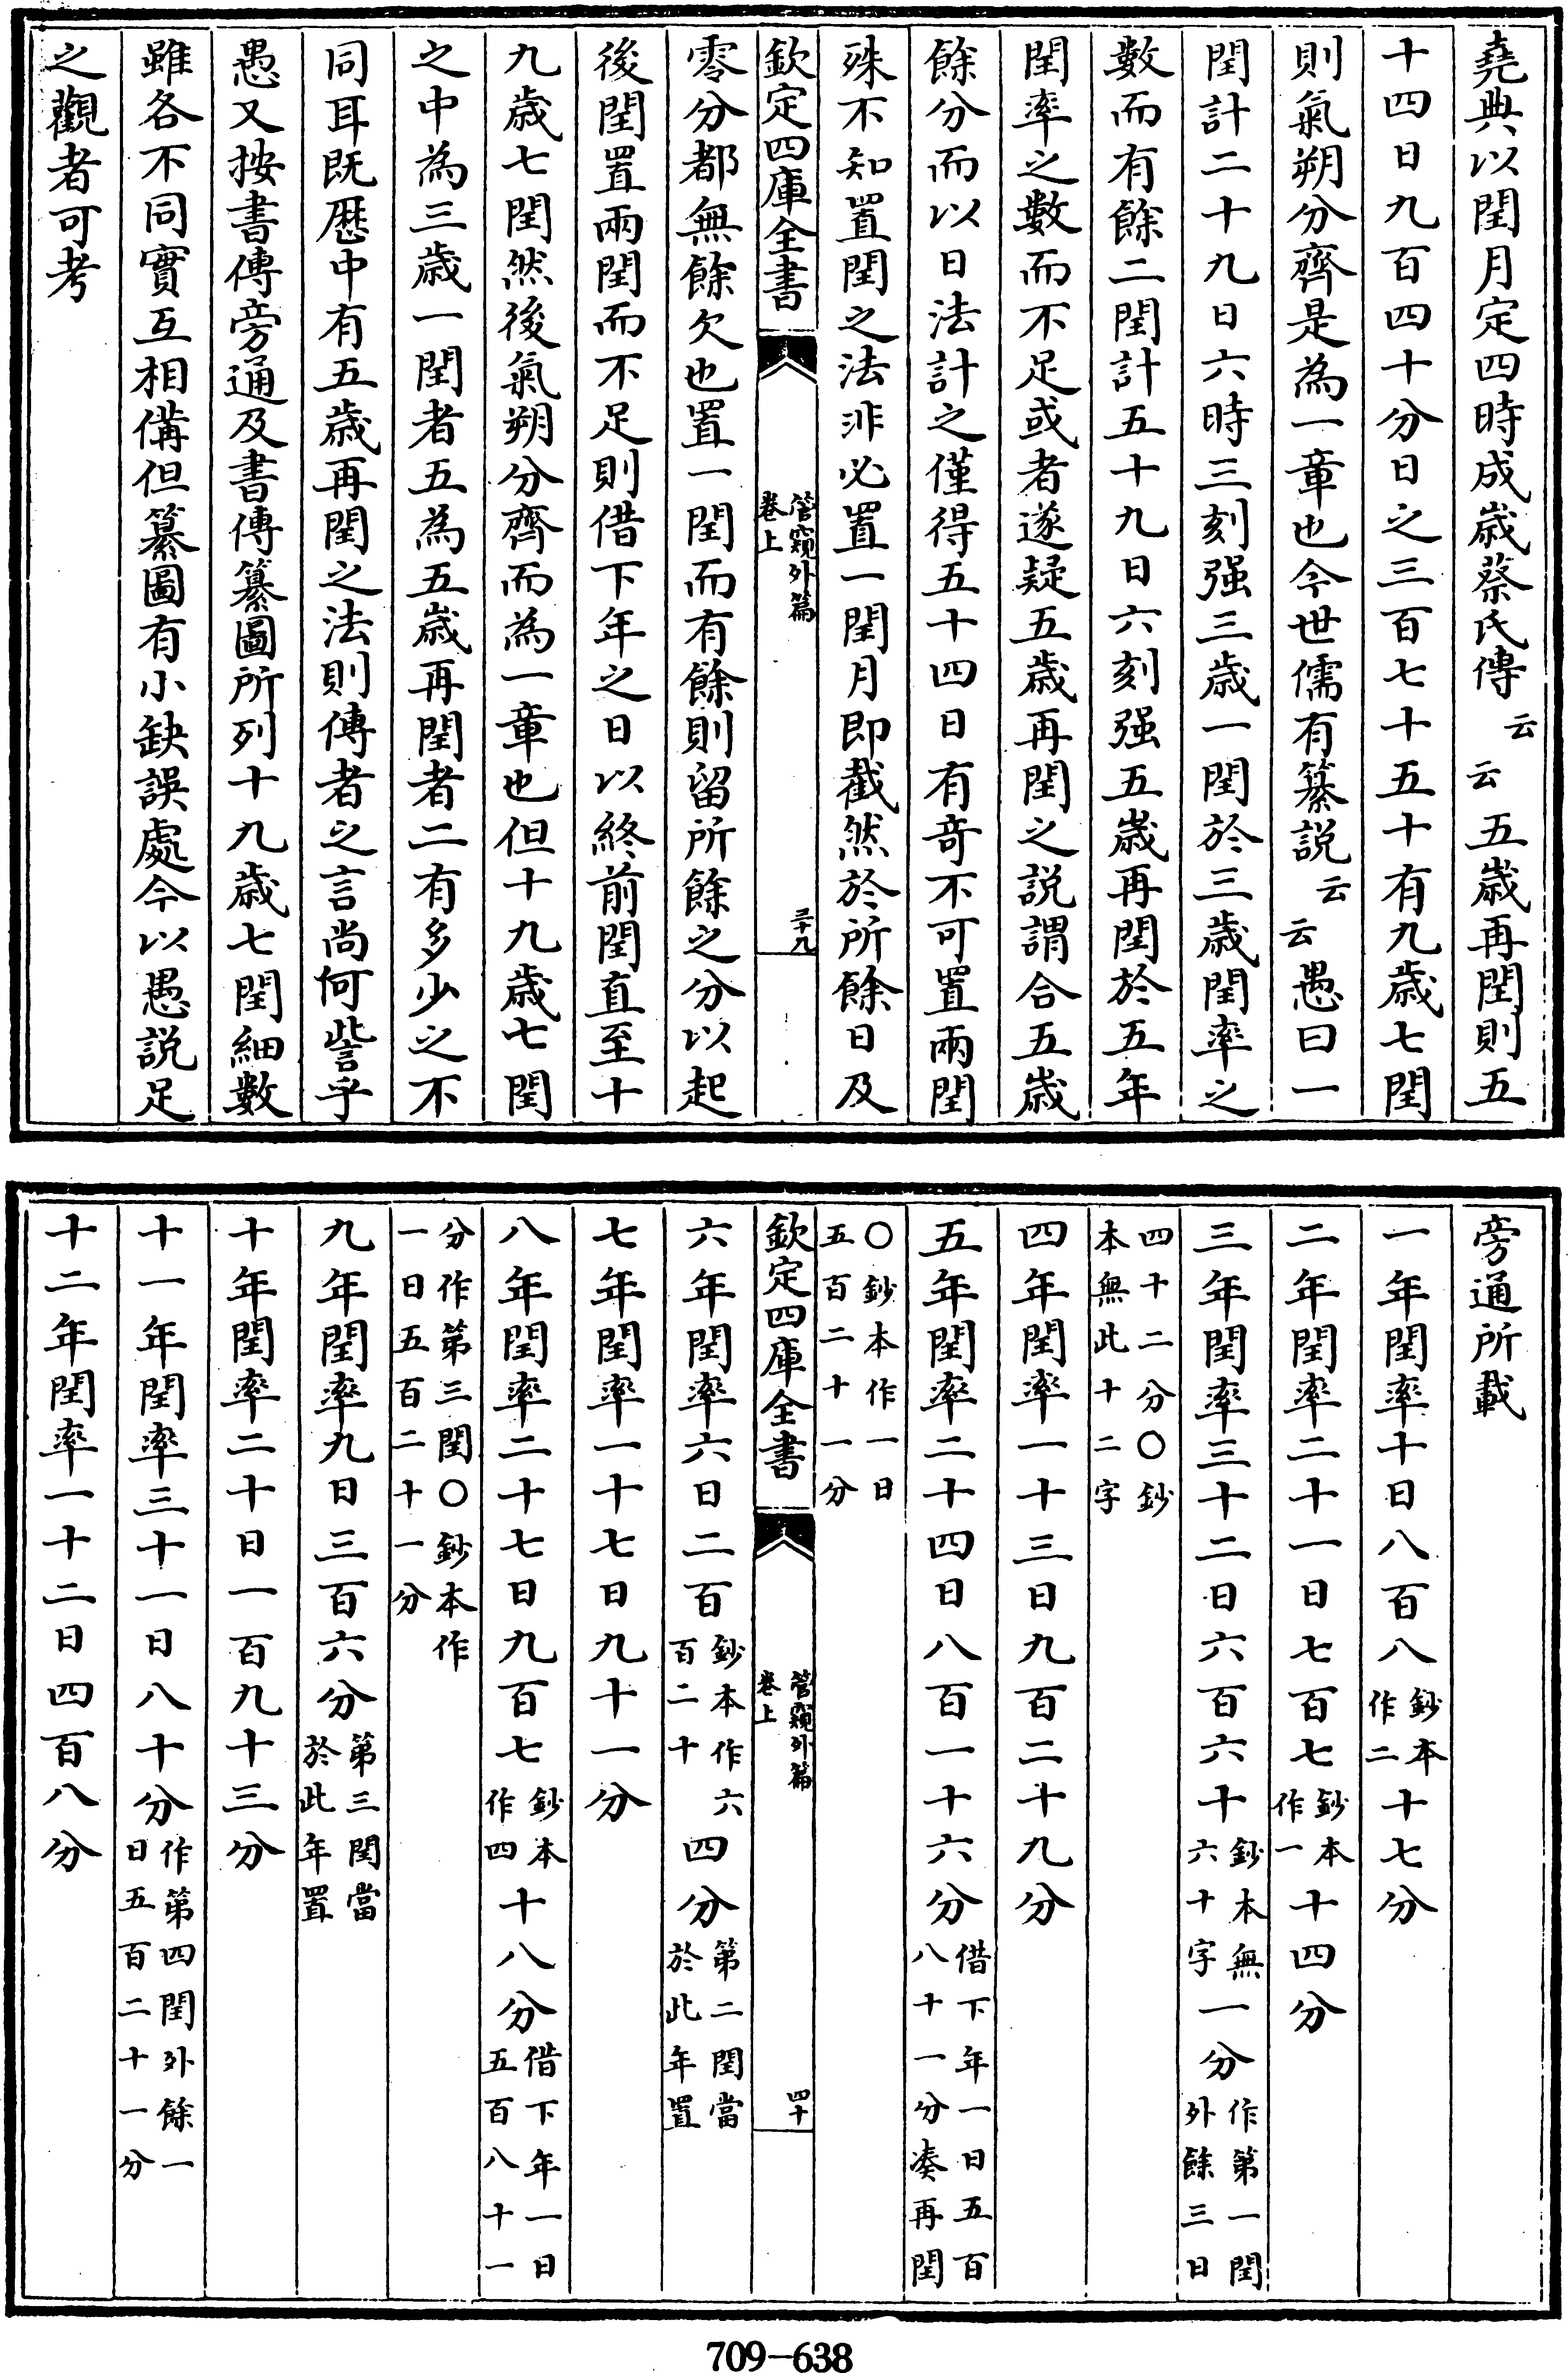 堯典以閏月定四時成歲蔡氏傳云云五歲再閏則五
十四日九百四十分日之三百七十五十有九歲七閏
則氣朔分齊是為一章也今世儒有纂説云云愚曰一
閏計二十九日六時三刻强三歲一閏於三歲閏率之
數而有餘二閏計五十九日六刻强五歲再閏於五年
閏率之數而不足或者遂疑五歲再閏之説謂合五歲
餘分而以日法計之僅得五十四日有竒不可置兩閏
殊不知置閏之法非必置一閏月即截然於所餘日及
欽定四庫全書
管窺外篇
卷上
三十九
零分都無餘欠也置一閏而有餘則留所餘之分以起
後閏置兩閏而不足則借下年之日以終前閏直至十
九歲七閏然後氣朔分齊而為一章也但十九歲七閏
之中為三歲一閏者五為五歲再閏者二有多少之不
同耳既厯中有五歲再閏之法則傳者之言尚何訾乎
愚又按書傳旁通及書傳纂圖所列十九歲七閏細數
雖各不同實互相備但纂圖有小缺誤處今以愚説足
之觀者可考
旁通所載
一年閏率十日八百八鈔本作二十七分
二年閏率二十一日七百七鈔本作一十四分
三年閏率三十二日六百六十鈔本無六十字一分作第一閏外餘三日
四十二分○鈔本無此十二字
四年閏率一十三日九百二十九分
五年閏率二十四日八百一十六分借下年一日五百八十一分凑再閏
○鈔本作一日五百二十一分
欽定四庫全書
管窺外篇
卷上
四十
六年閏率六日二百鈔本作六百二十四分第二閏當於此年置
七年閏率一十七日九十一分
八年閏率二十七日九百七鈔本作四十八分借下年一日五百八十一
分作第三閏○鈔本作一日五百二十一分
九年閏率九日三百六分第三閏當於此年置
十年閏率二十日一百九十三分
十一年閏率三十一日八十分作第四閏外餘一日五百二十一分
十二年閏率一十二日四百八分
709-638